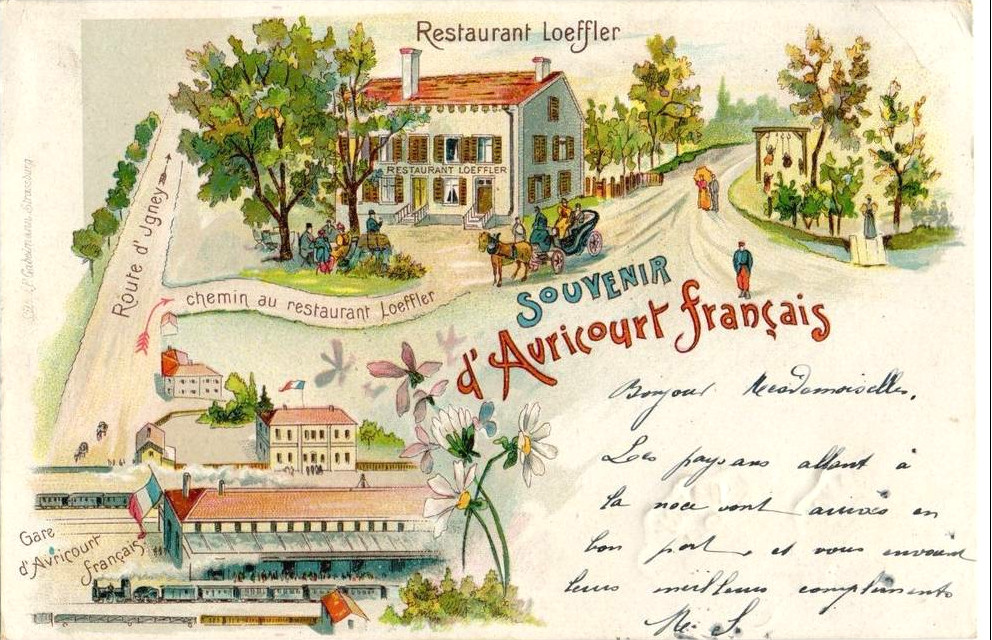 Restaurant Loeffler
RESTAURANT LOEFFLER
Route d'Igney
chemin au restaurant Loeffler
SOUVENIR
d'Avricourt français
Gare
d'Avricourt
français
Bonjour Mesdemoiselles,
Les paysans allant à
la noce sont arrivés en
bon port, et vous envoient
leurs meilleurs compliments